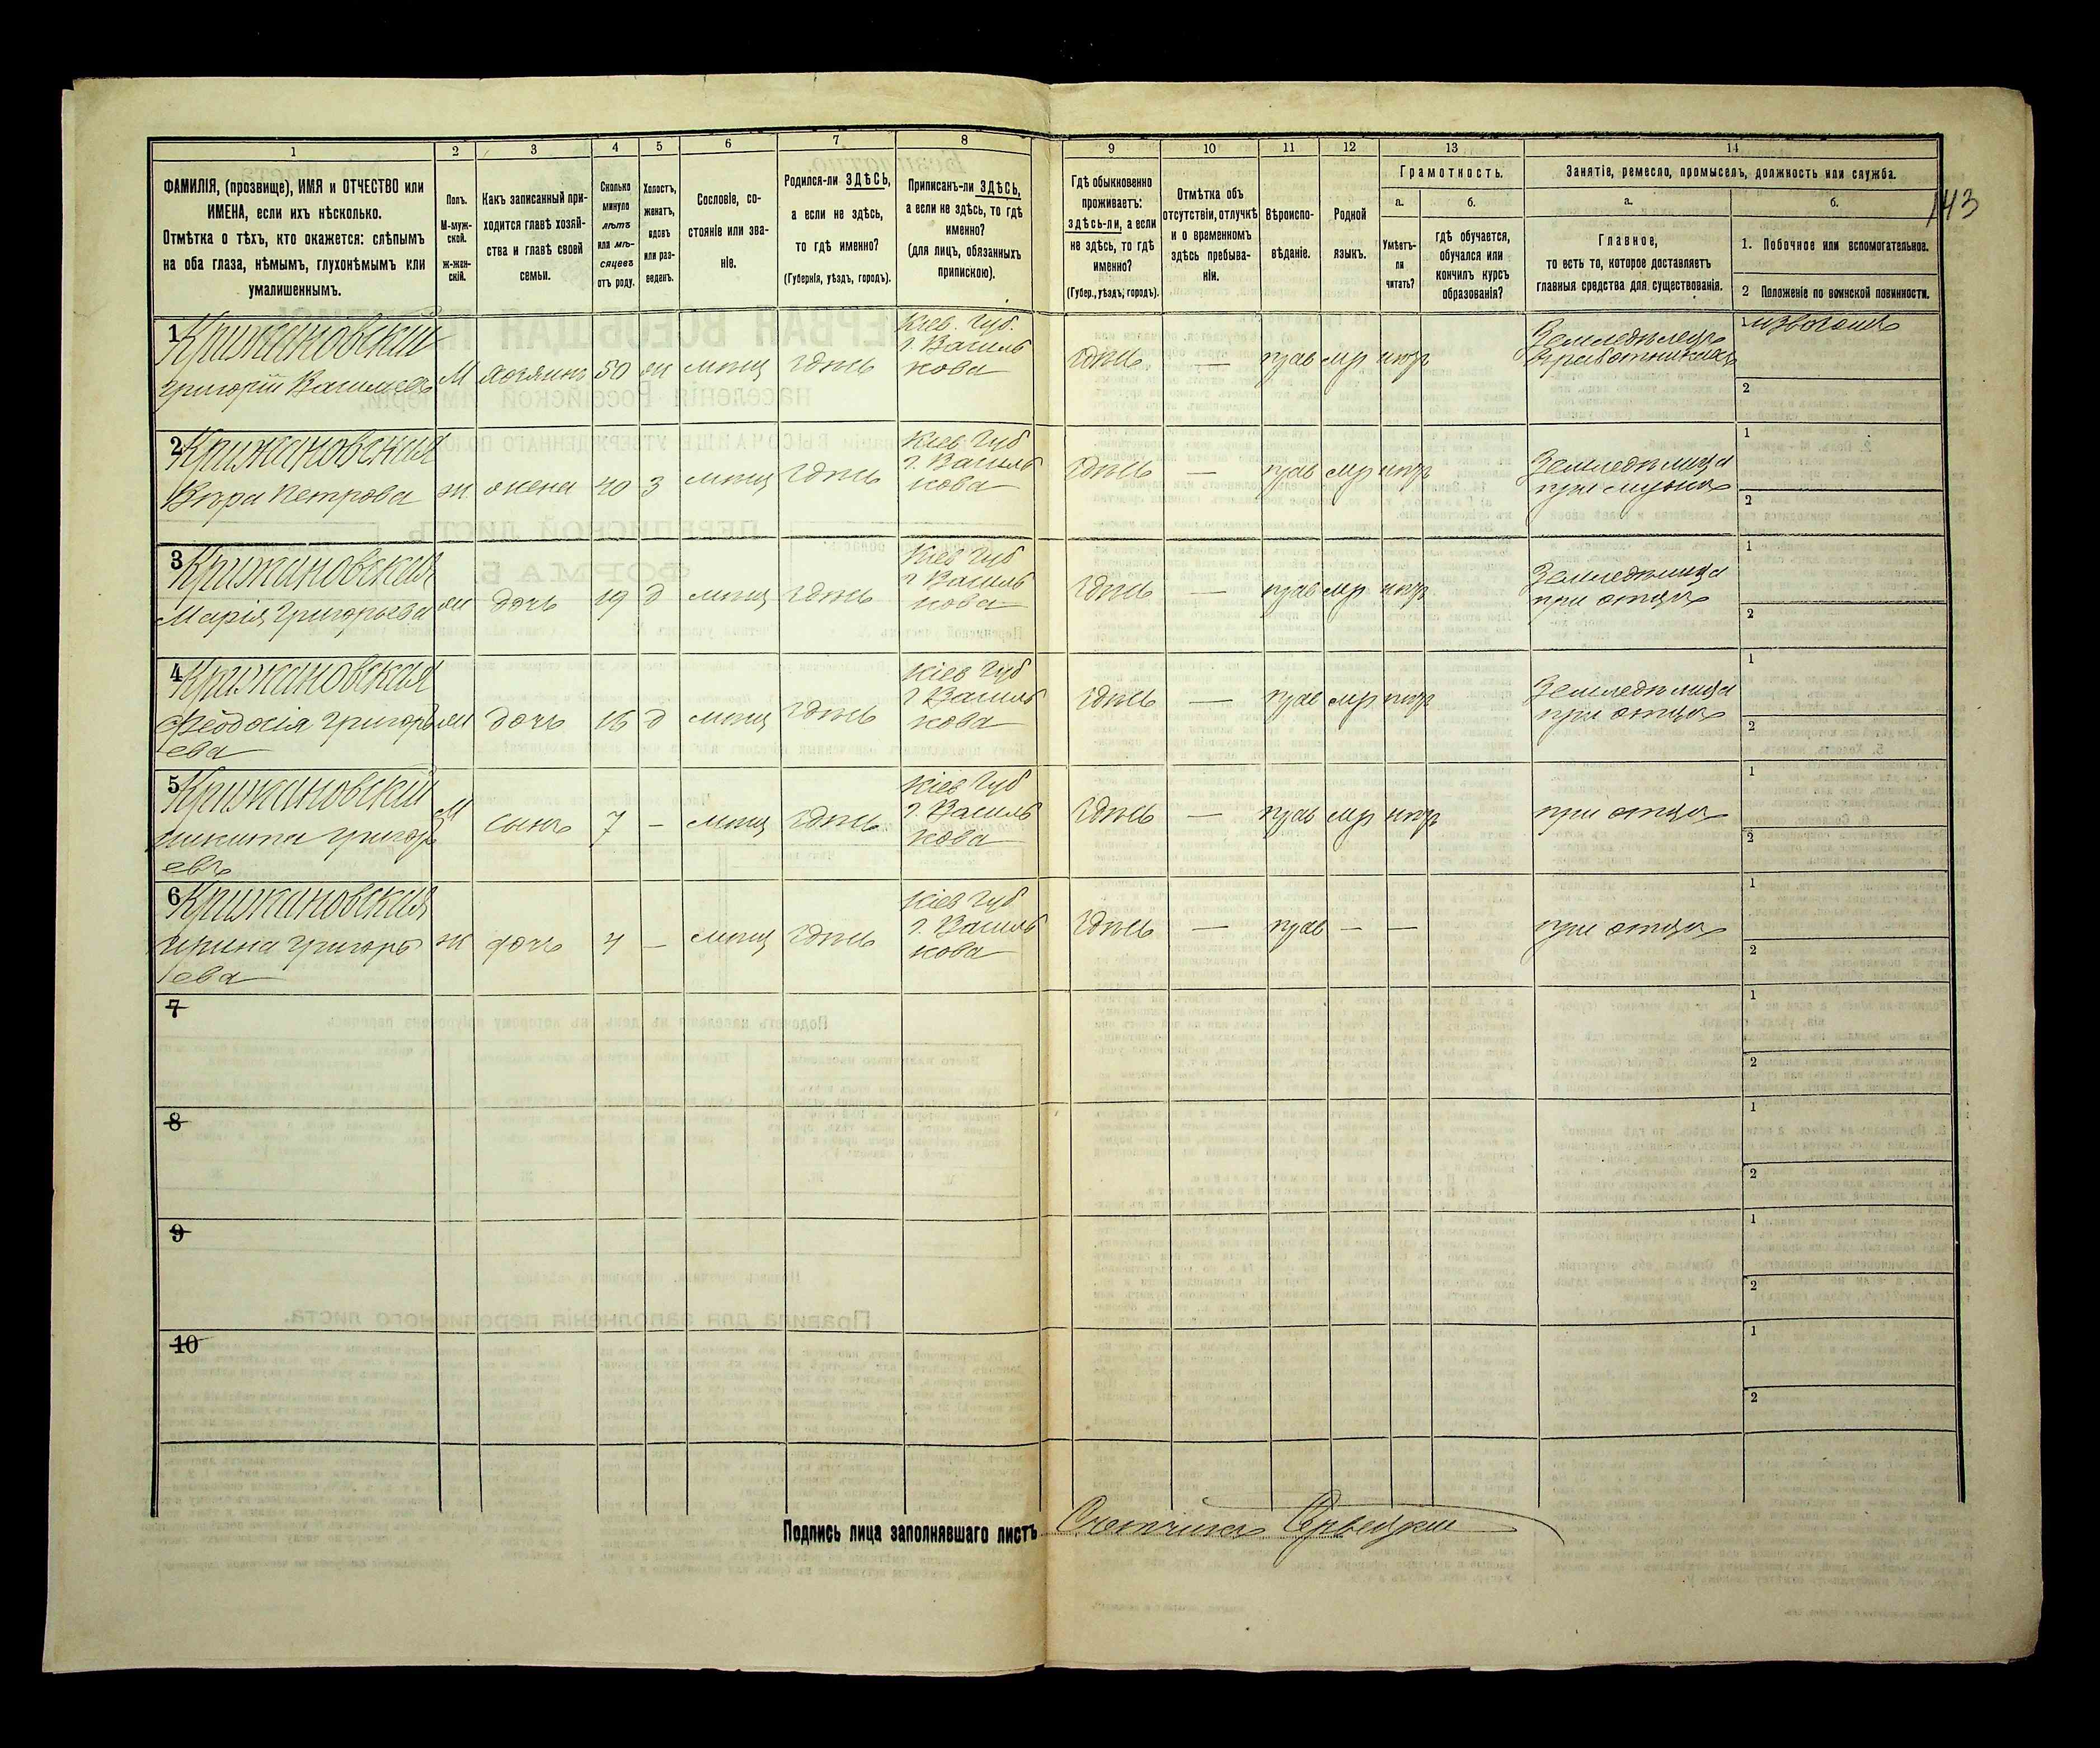 1 2 3 4 5 6 7 8 9 10 11 12 13 14
ФАМИЛІЯ, (прозвище), ИМЯ и ОТЧЕСТВО или
ИМЕНА, если ихъ нѣсколько.
Отмѣтка о тѣхъ, кто окажется: слѣпымъ
на оба глаза, нѣмымъ, глухонѣмымъ или
умалишеннымъ.
Полъ.
М-муж-
ской.
ж-жен-
скій.
Какъ записанный при-
ходится главѣ хозяй-
ства и главѣ своей
семьи.
Сколько
минуло
лѣтъ
или мѣ-
сяцевъ
отъ роду.
Холостъ,
женатъ,
вдовъ
или раз-
веденъ.
Сословіе, со-
стояніе или зва-
ніе.
Родился-ли ЗДѢСЬ,
а если не здѣсь,
то гдѣ именно?
(Губернія, уѣздъ, городъ).
Приписанъ-ли ЗДѢСЬ,
а если не здѣсь, то гдѣ
именно?
(для лицъ, обязанныхъ
припискою).
Гдѣ обыкновенно
проживаетъ:
здѣсь-ли, а если
не здѣсь, то гдѣ
именно?
(Губер., уѣздъ, городъ).
Отмѣтка объ
отсутствіи, отлучкѣ
и о временномъ
здѣсь пребыва-
ніи.
Вѣроиспо-
вѣданіе.
Родной
языкъ.
Грамотность.
а.
Умѣетъ-
ли
читать?
б.
гдѣ обучается,
обучался или
кончилъ курсъ
образованія?
Занятіе, ремесло, промыселъ, должность или служба.
а.
Главное,
то есть то, которое доставляетъ
главныя средства для существованія.
б.
1. Побочное или вспомогательное.
2 Положеніе по воинской повинности.
143
1 Крижановскій
Григорій Васильевъ М хозяинъ 50 ж мѣщ здѣсь
Кіев. Губ.
г. Василь
кова
здѣсь — прав мр нѣтъ
Земледѣлецъ
1
2
2 Крижановская
Вѣра Петрова ж жена 40 з мѣщ здѣсь
Кіев Губ
г. Василь
кова
здѣсь — прав мр нѣтъ
Земледѣлица
при мужѣ
1
2
3 Крижановская
Марія Григорьева ж дочь 19 д мѣщ здѣсь
Кіев Губ
г Василь
кова
здѣсь — прав мр нѣтъ
Земледѣлица
при отцѣ
1
2
4 Крижановская
Феодосія Григорь ж дочь 16 д мѣщ здѣсь
ева
Кіев Губ
г Василь
кова
здѣсь — прав мр нѣтъ
Земледѣлица
при отцѣ
1
2
5 Крижановскій
Никита Григорь М сынъ 7 — мѣщ здѣсь
евъ
Кіев Губ
г. Василь
кова
здѣсь — прав мр нѣтъ
при отцѣ
1
2
6 Крижановская
Ирина Григорь ж дочь 4 — мѣщ здѣсь
ева
Кіев Губ
г. Василь
кова
здѣсь — прав — —
при отцѣ
1
2
7
1
2
8
1
2
9
1
2
10
1
2
Подпись лица заполнявшаго листъ Счетчикъ